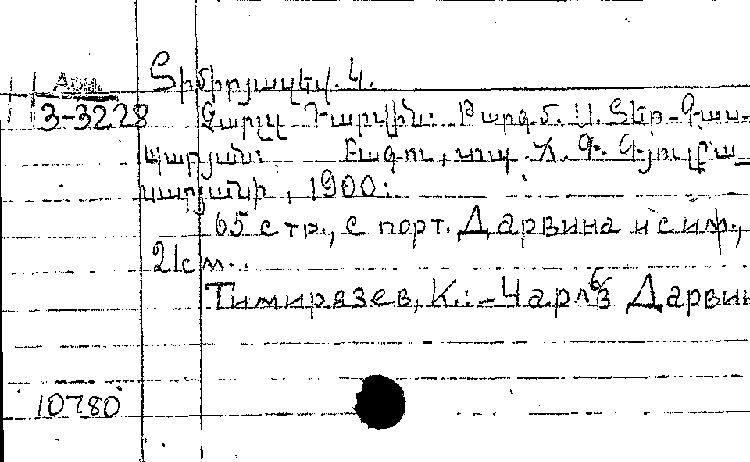 Տիմիրյազեվ. Կ.
Арм.
3-3228 Չարլզ Դարվին: Թարգմ. Ս. Տեր-Գաս-
պարյան: Բագու, տպ. Ն. Գ. Գյուլբա_
սարյանի, 1900:
65 стр., с порт. Дарвина и сим.,
21см..
Тимирязев, К.:-Чарльз Дарвин
10780